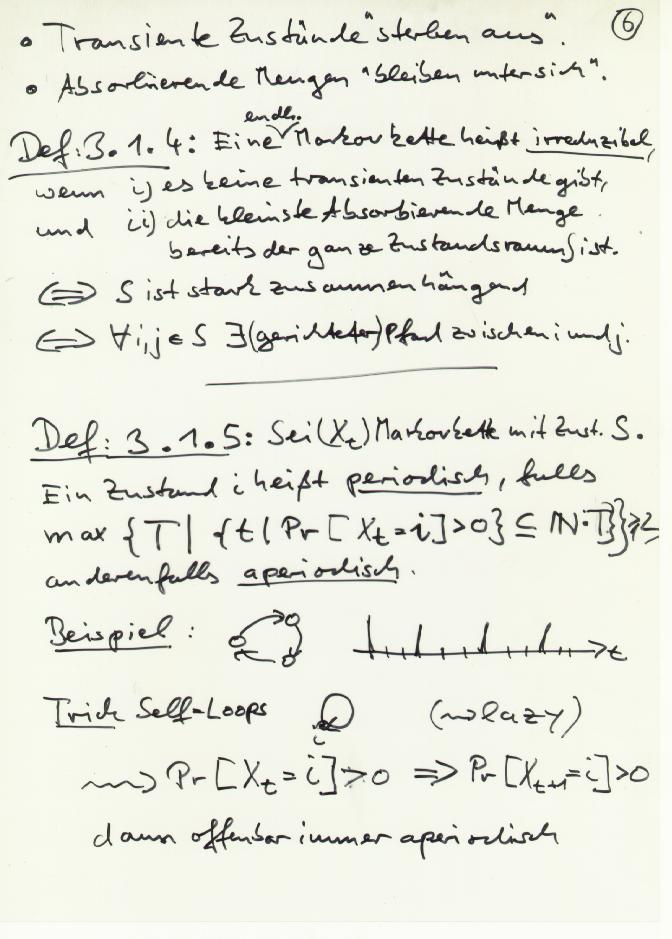 6
• Transiente Zustände "sterben aus".
• Absorbierende Mengen "bleiben unter sich".
endl.
Def: 3.1.4: Eine Markovkette heißt irreduzibel,
wenn i) es keine transienten Zustände gibt,
und ii) die kleinste Absorbierende Menge
bereits der ganze Zustandsraum S ist.
⟺ S ist stark zusammenhängend
⟺ ∀i,j ∈ S ∃(gerichteter) Pfad zwischen i und j.
Def: 3.1.5: Sei (X_t) Markovkette mit Zust. S.
Ein Zustand i heißt periodisch, falls
max {T | {t | Pr [X_t = i] > 0} ⊆ ℕ·T} ≥ 2
anderenfalls aperiodisch.
Beispiel: t
Trick Self-Loops i (⇝ lazy)
⇝ Pr [X_t = i] > 0 ⇒ Pr [X_{t+1} = i] > 0
dann offenbar immer aperiodisch